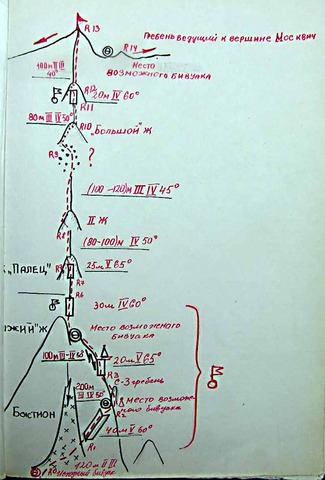 R13
Гребень ведущий к вершине Москвич
R14
Место
возможного бивуака
100м II III
40°
R12
20м IV 60°
R11
80м III IV 50°
R10 „Большой" Ж
R9
?
(100-120)м III IV 45°
II Ж
R8
(80-100)м IV 50°
Ж „Палец"
25м V 65°
R7
R6
30м IV 60°
жий" Ж
Место возможного
бивуака
100м III-IV 60°
20м V 65°
R3
С-З гребень
200м
III IV 50°
Место возмож-
ного бивуака
R2
Бастион
40м V 60°
R1
120м II III
R0 Исходный бивуак